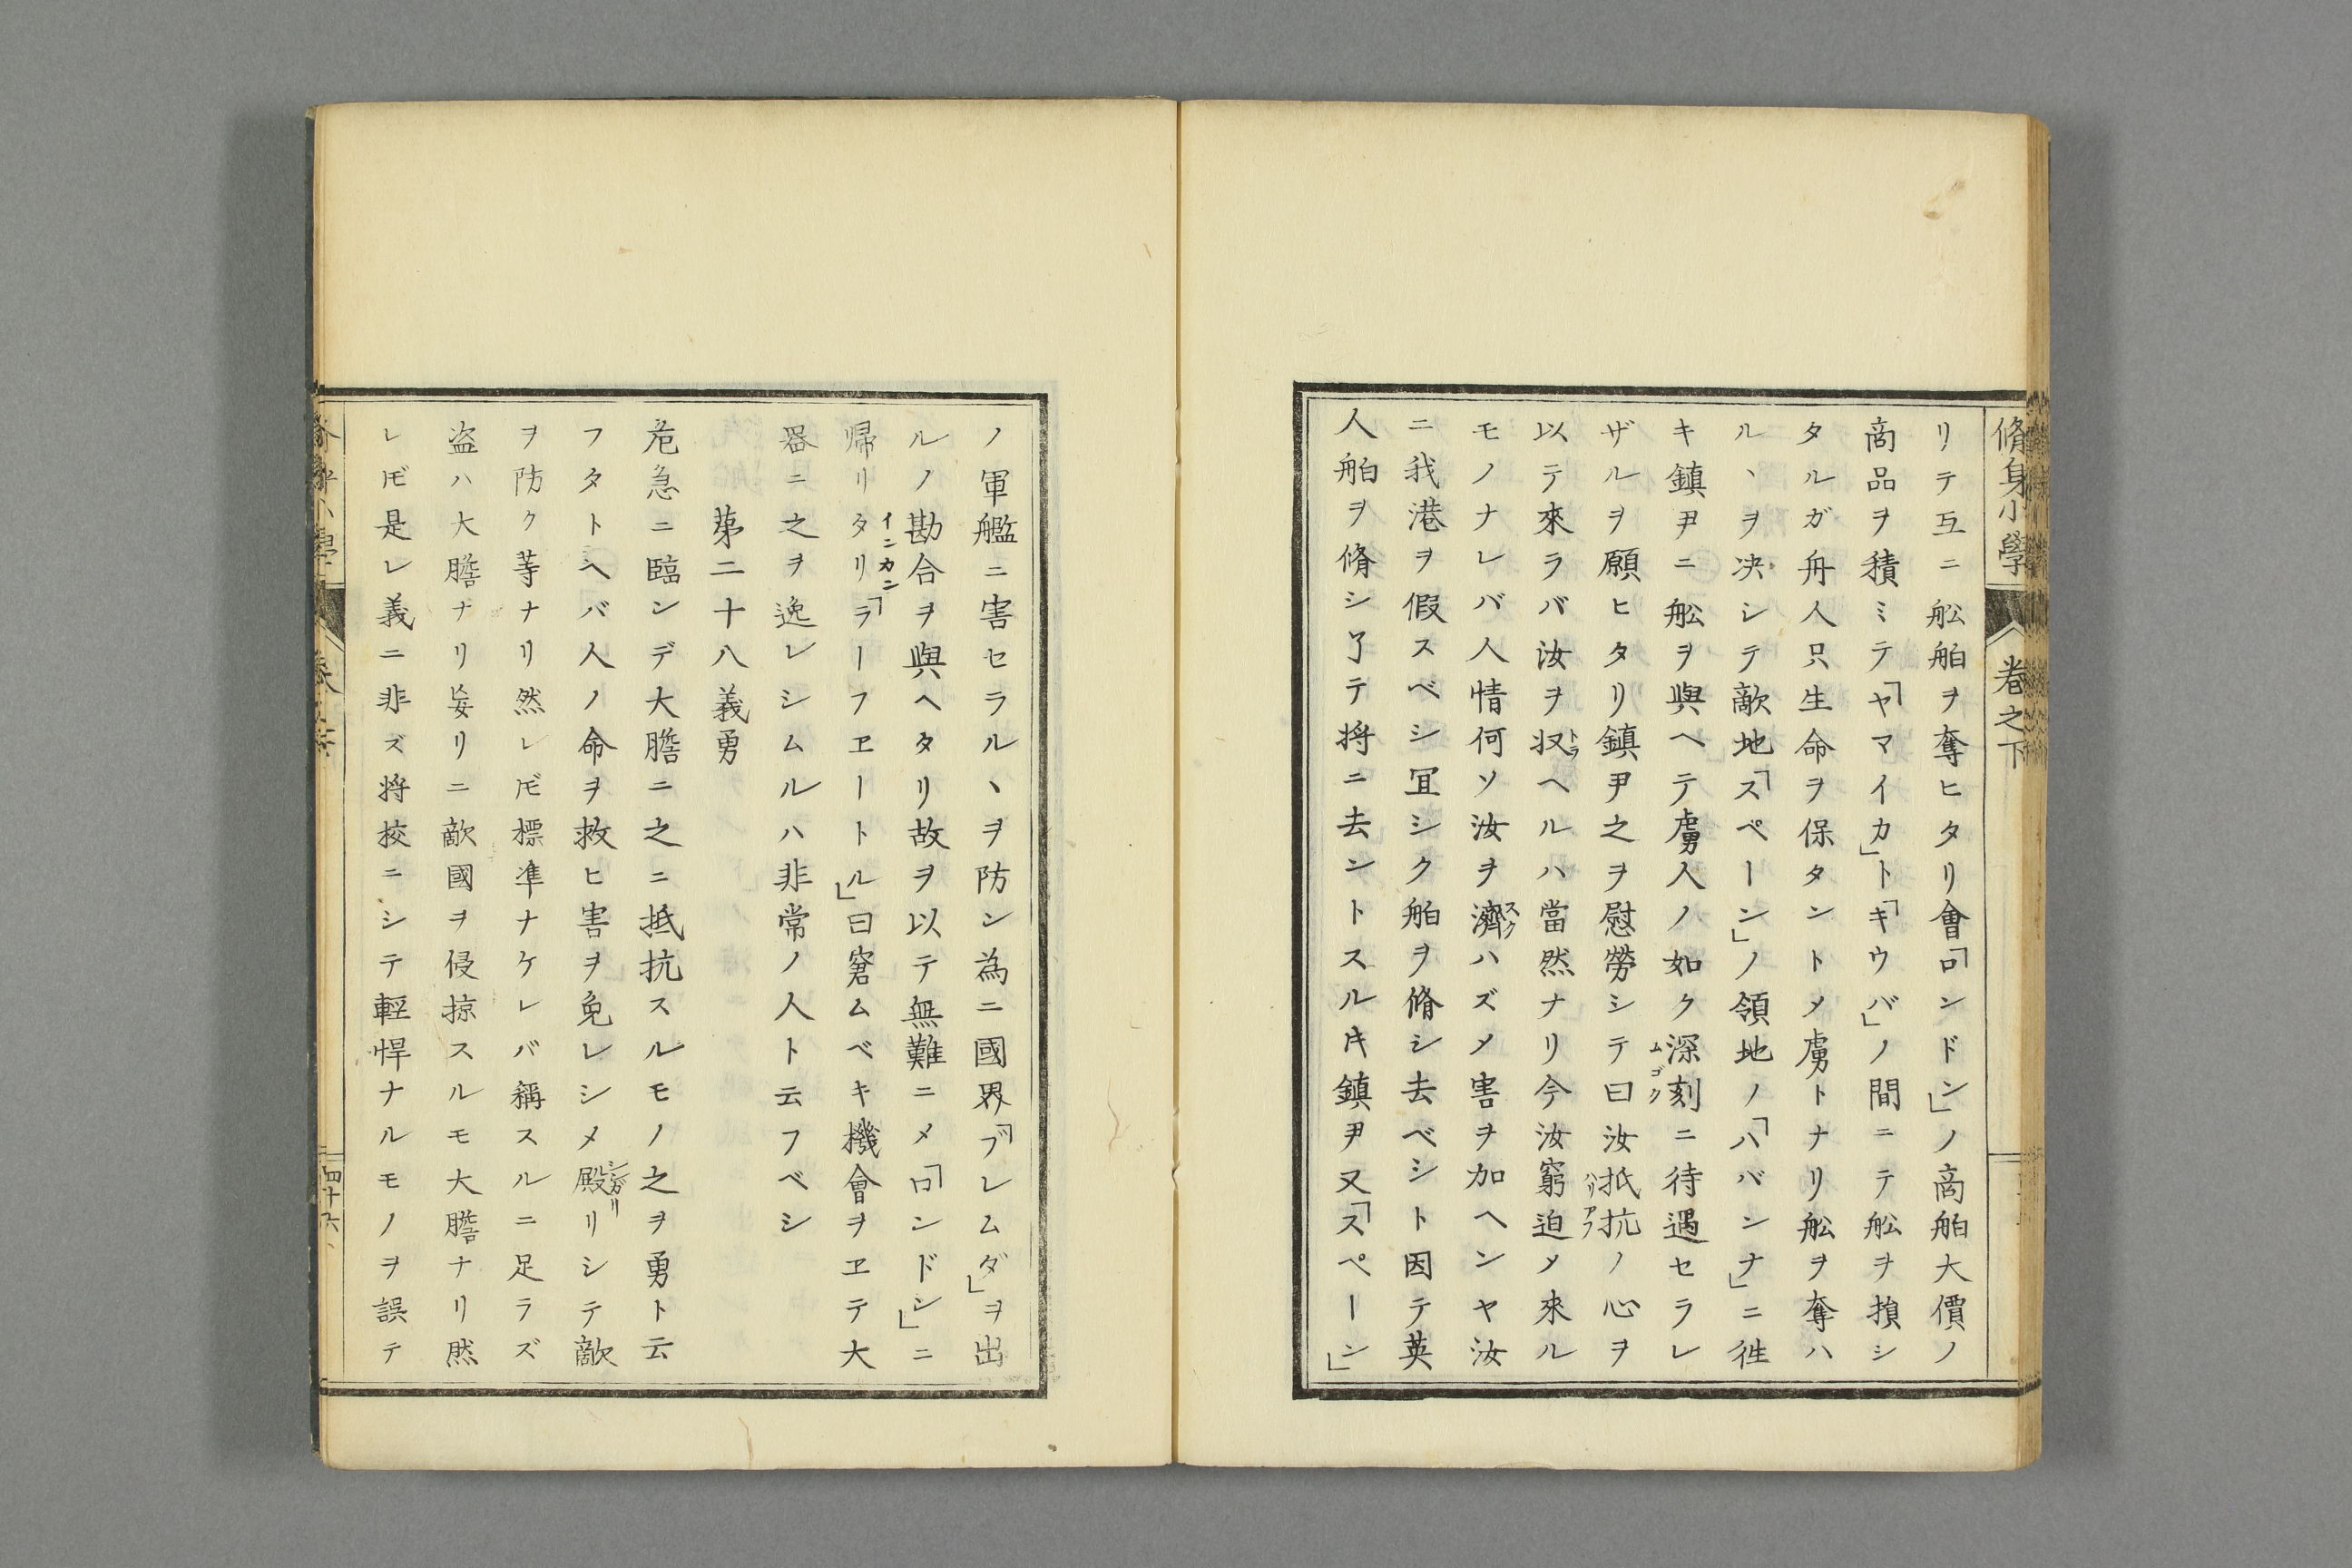 脩身小學
卷之下
リテ互ニ舩舶ヲ奪ヒタリ會「ロンドン」ノ商舶大價ノ
商品ヲ積ミテ「ヤマイカ」ト「キウバ」ノ間ニテ舩ヲ損シ
タルガ舟人只生命ヲ保タントメ虜トナリ舩ヲ奪ハ
ルヽヲ决シテ敵地「スペーン」ノ領地ノ「ハバンナ」ニ徃
キ鎮尹ニ舩ヲ與ヘテ虜人ノ如ク深刻ムゴクニ待遇セラレ
ザルヲ願ヒタリ鎮尹之ヲ慰勞シテ曰汝抵抗ハリアフノ心ヲ
以テ來ラバ汝ヲ収トラヘルハ當然ナリ今汝窮迫メ來ル
モノナレバ人情何ソ汝ヲ濟スクハズメ害ヲ加ヘンヤ汝
ニ我港ヲ假スベシ冝シク舶ヲ脩シ去ベシト因テ英
人舶ヲ脩シ了テ将ニ去ントスルキ鎮尹又「スペーン」
ノ軍艦ニ害セラルヽヲ防ン為ニ國界「ブレムダ」ヲ出
ルノ勘合インカンヲ與ヘタリ故ヲ以テ無難ニメ「ロンドン」ニ
帰リタリ「ラーフヱートル」曰窘ムベキ機會ヲヱテ大
器ニ之ヲ逸レシムルハ非常ノ人ト云フベシ
苐二十八義勇
危急ニ臨ンデ大膽ニ之ニ抵抗スルモノ之ヲ勇ト云
フタトヘバ人ノ命ヲ救ヒ害ヲ免レシメ殿シガリリシテ敵
ヲ防ク等ナリ然レㇹ標凖ナケレバ稱スルニ足ラズ
盗ハ大膽ナリ妄リニ敵國ヲ侵掠スルモ大膽ナリ然
レㇹ是レ義ニ非ズ将校ニシテ輕悍ナルモノヲ誤テ
四十六